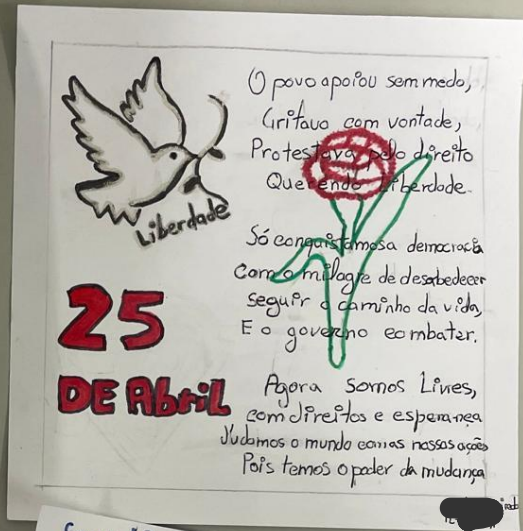 Liberdade
25
DE Abril
O povo apoiou sem medo,
Gritava com vontade,
Protestava pelo direito
Querendo liberdade.
Só conquistamos a democracia
Com o milagre de desobedecer
seguir o caminho da vida,
E o governo combater.
Agora somos Livres,
com direitos e esperança
Mudamos o mundo com as nossas ações
Pois temos o poder da mudança